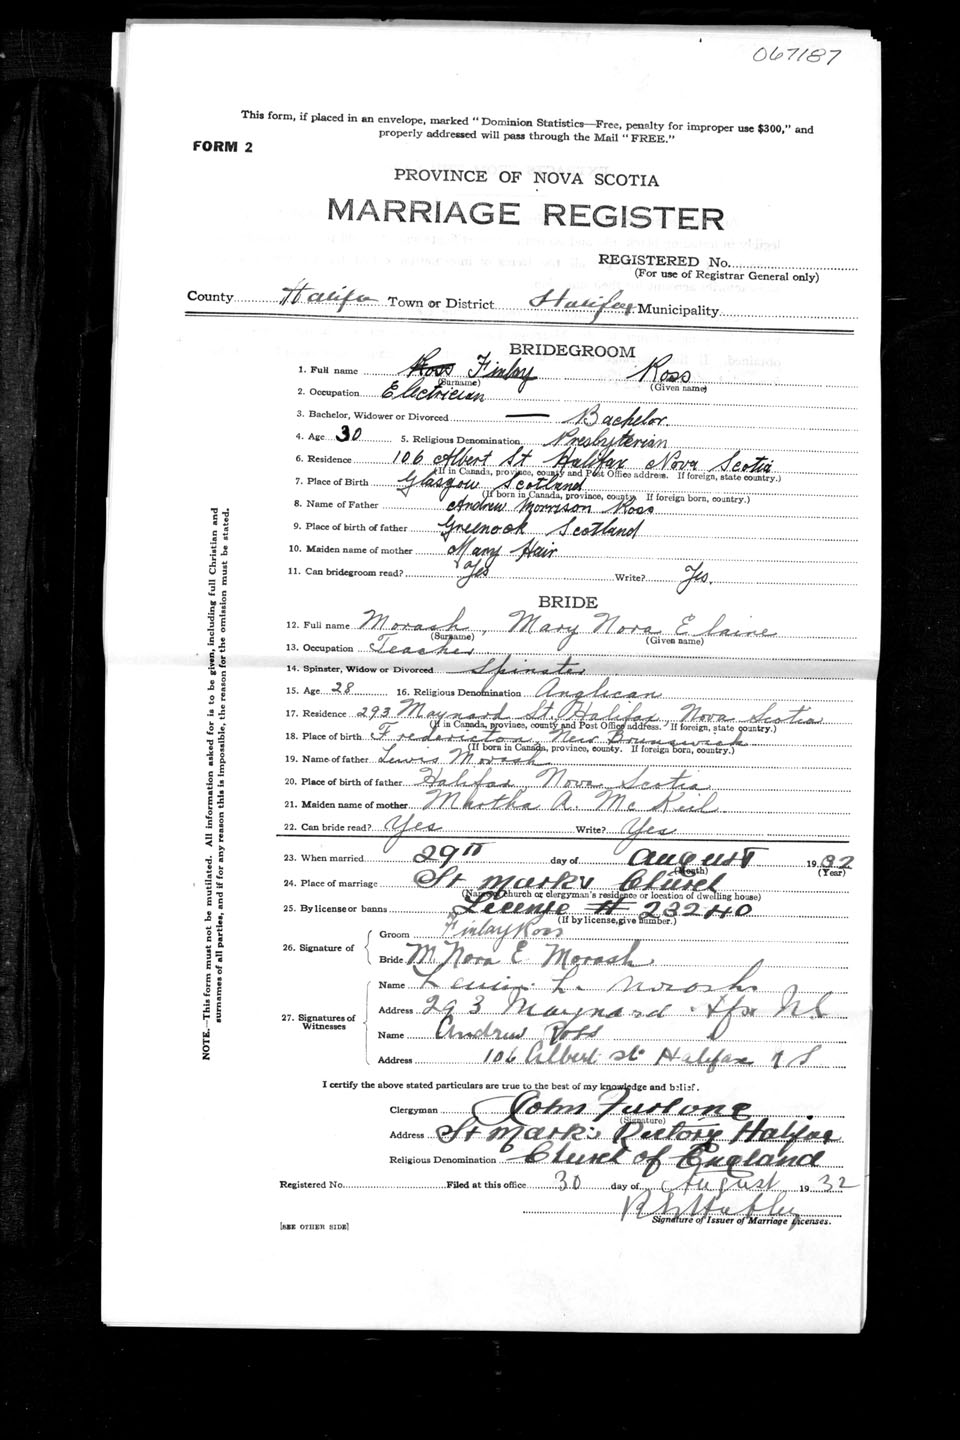 067187
This form, if placed in an envelope, marked "Dominion Statistics—Free, penalty for improper use $300," and
properly addressed will pass through the Mail "FREE."
FORM 2
PROVINCE OF NOVA SCOTIA
MARRIAGE REGISTER
REGISTERED No.
(For use of Registrar General only)
County Halifax Town or District Halifax Municipality
BRIDEGROOM
1. Full name Ross Finlay Ross
(Surname) (Given name)
2. Occupation Electrician
3. Bachelor, Widower or Divorced — Bachelor.
4. Age 30 5. Religious Denomination Presbyterian
6. Residence 106 Albert St Halifax Nova Scotia
(If in Canada, province, county and Post Office address. If foreign, state country.)
7. Place of Birth Glasgow Scotland
(If born in Canada, province, county. If foreign born, country.)
8. Name of Father Andrew Morrison Ross
9. Place of birth of father Greenock Scotland
10. Maiden name of mother Mary Hair
11. Can bridegroom read? Yes Write? Yes.
BRIDE
12. Full name Morash, Mary Nora Elaine
(Surname) (Given name)
13. Occupation Teacher
14. Spinster, Widow or Divorced Spinster
15. Age 28 16. Religious Denomination Anglican
17. Residence 293 Maynard St. Halifax, Nova Scotia
(If in Canada, province, county and Post Office address. If foreign, state country.)
18. Place of birth Fredericton, New Brunswick
(If born in Canada, province, county. If foreign born, country.)
19. Name of father Lewis Morash
20. Place of birth of father Halifax, Nova Scotia
21. Maiden name of mother Martha A. McKeil
22. Can bride read? Yes Write? Yes
23. When married 29th day of August 1932
(Month) (Year)
24. Place of marriage St Mark's Church
(Name of church or clergyman's residence or location of dwelling house)
25. By license or banns License # 23240
(If by license, give number.)
26. Signature of
Groom Finlay Ross
Bride M Nora E Morash
27. Signatures of Witnesses
Name Lewis L. Morash
Address 293 Maynard Hfx NS
Name Andrew Ross
Address 106 Albert St Halifax N S
I certify the above stated particulars are true to the best of my knowledge and belief.
Clergyman John Furlong
(Signature)
Address St Mark's Rectory Halifax
Religious Denomination Church of England
Registered No. Filed at this office 30 day of August 1932
Signature of Issuer of Marriage Licenses.
[SEE OTHER SIDE]
NOTE.—This form must not be mutilated. All information asked for is to be given, including full Christian and
surnames of all parties, and if for any reason this is impossible, the reason for the omission must be stated.